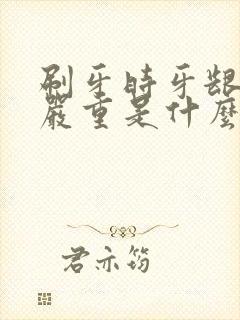 刷牙時牙龈
嚴重是什麼
君亦筠